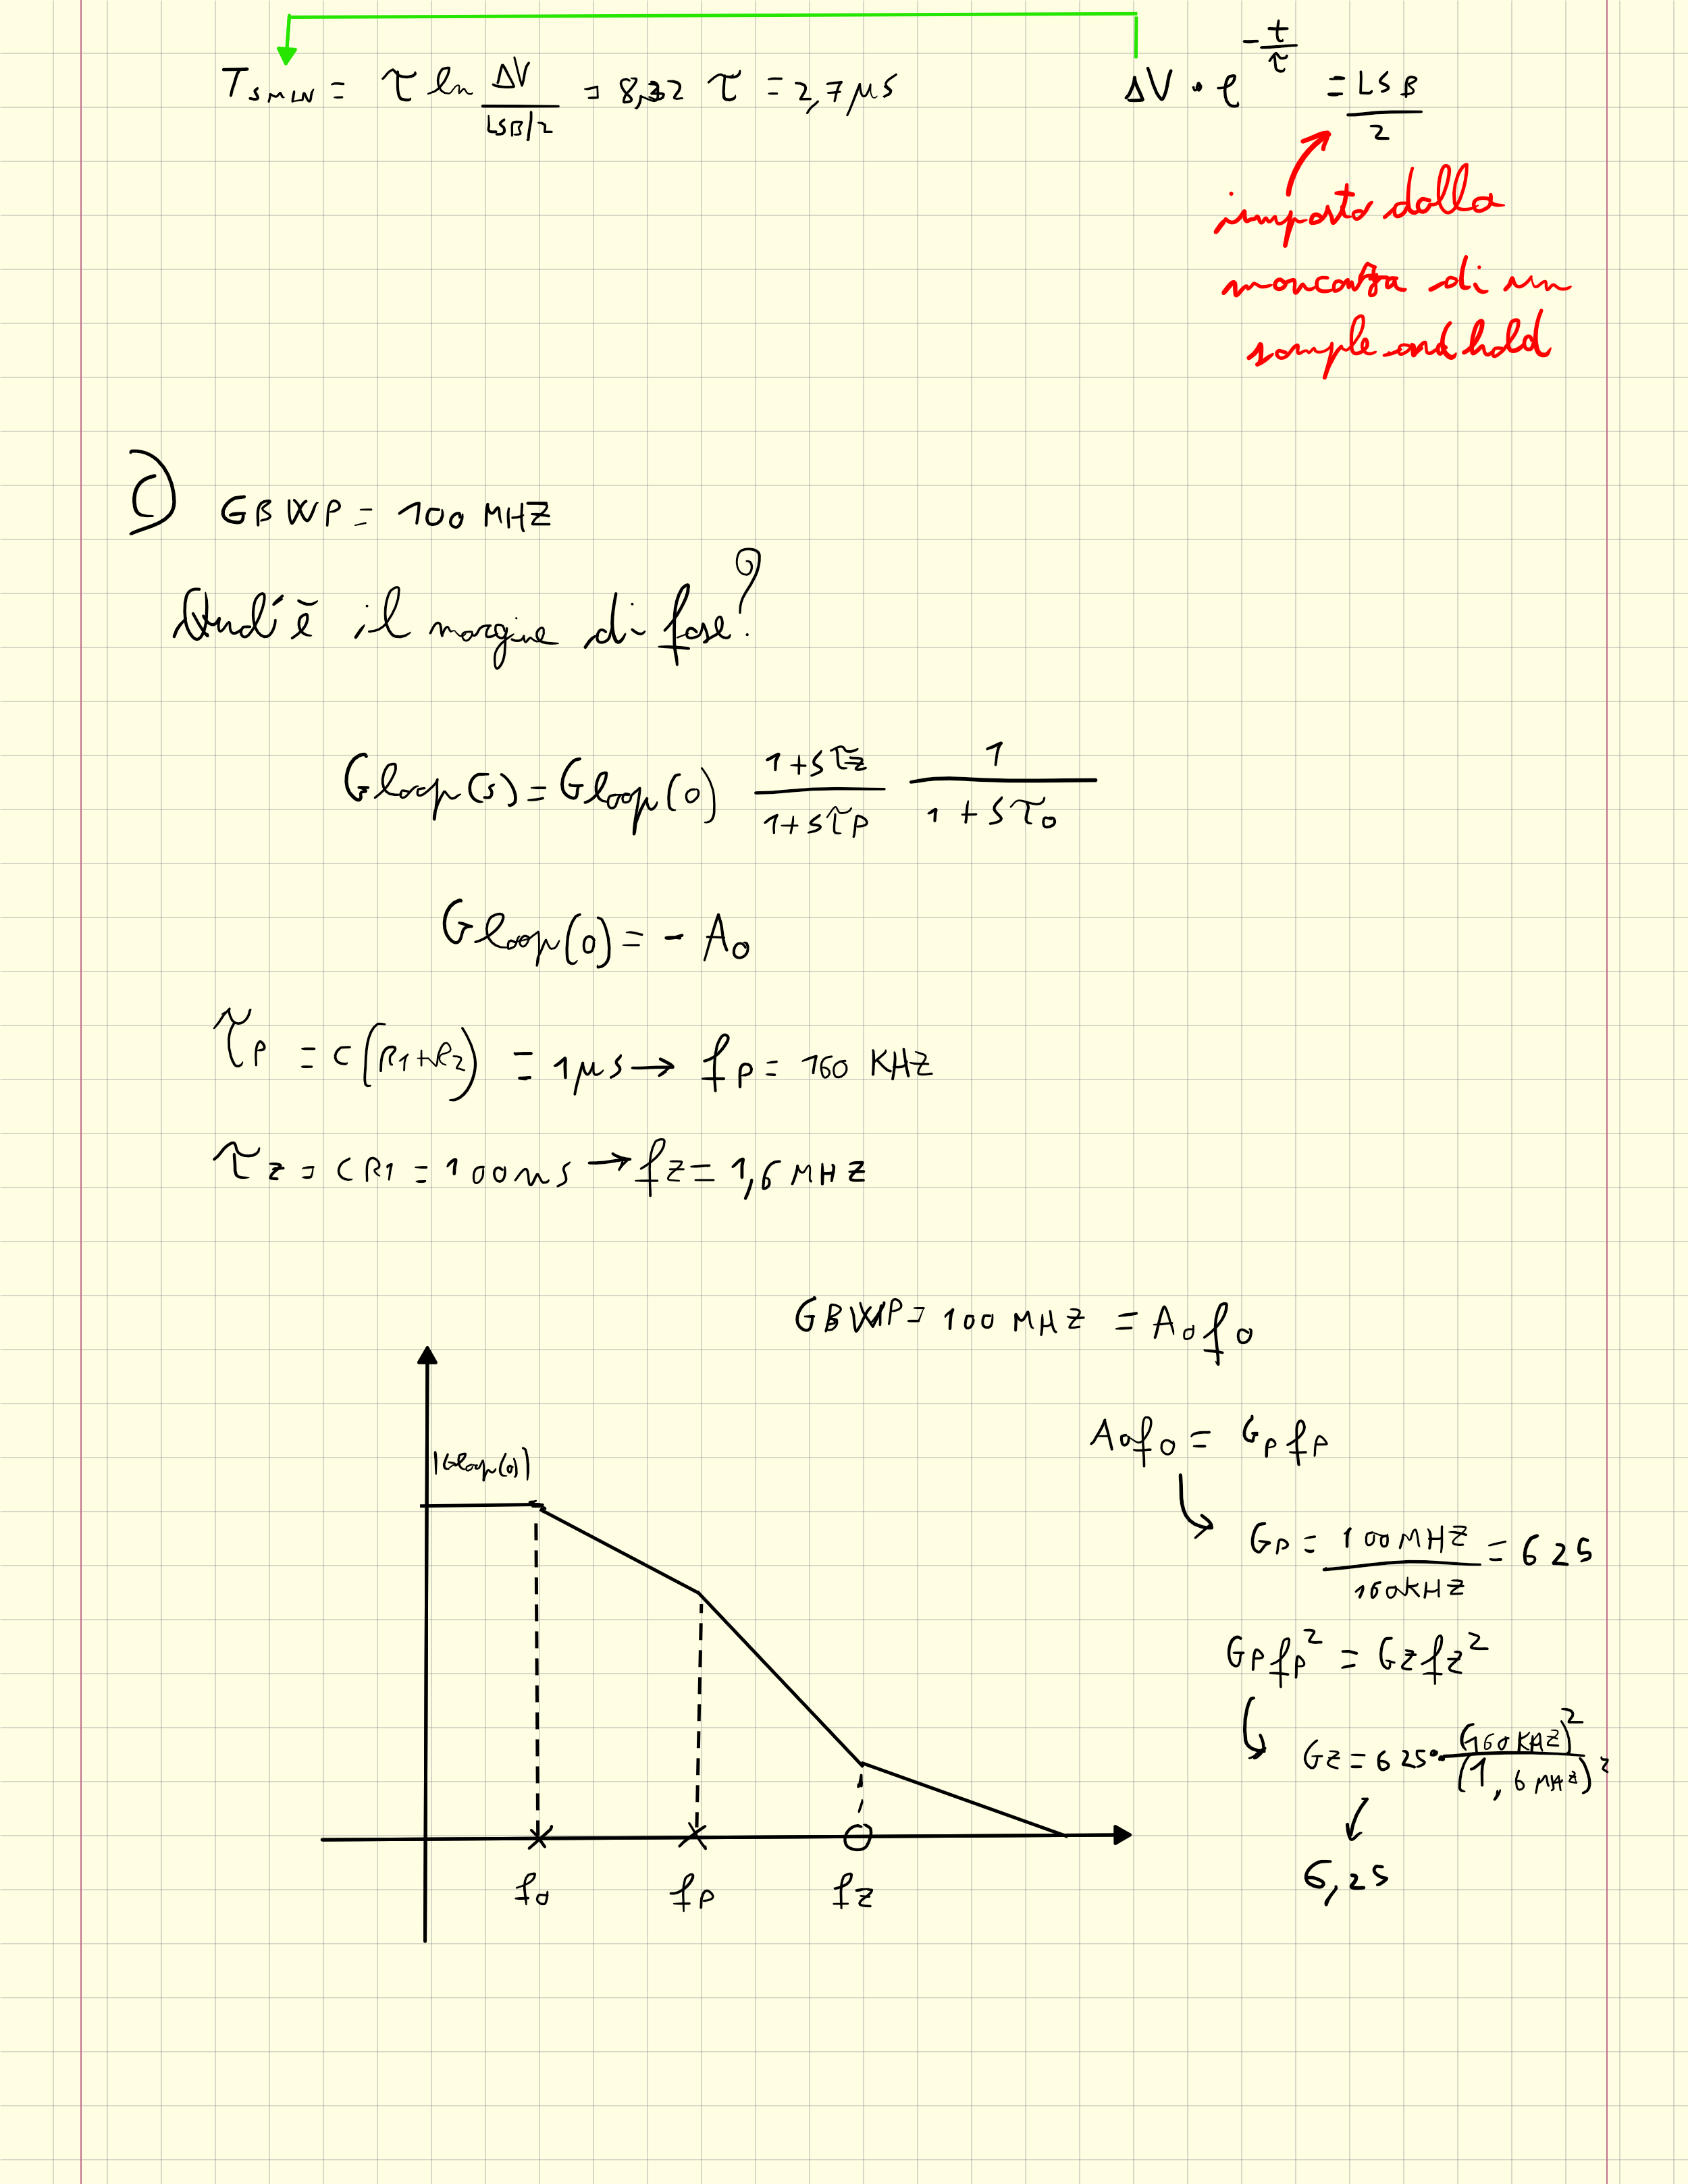 T_SMIN = τ ln ΔV/(LSB/2) = 8,32 τ = 2,7 μs
ΔV · e^(-t/τ) = LSB/2
imposto dalla
mancanza di un
sample and hold
C) GBWP = 100 MHZ
Qual'è il margine di fase?
Gloop(s) = Gloop(0) (1+sτz)/(1+sτp) 1/(1+sτ0)
Gloop(0) = - A0
τp = C(R1+R2) = 1μs → fp = 160 KHZ
τz = CR1 = 100ns → fz = 1,6 MHZ
GBWP = 100 MHZ = A0f0
|Gloop(0)|
A0f0 = Gpfp
Gp = 100MHZ/160KHZ = 625
Gpfp² = Gzfz²
Gz = 625 · (160 KHZ)²/(1,6 MHZ)²
6,25
f0 fp fz